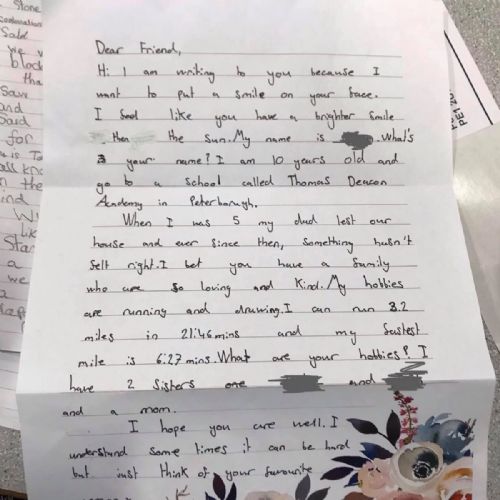 Stone
Said
we
block
tha
Save
and
Said
for
the
a
we
a
Dear Friend,
Hi I am writing to you because I
want to put a smile on your face.
I feel like you have a brighter smile
then the sun. My name is . What's
your name? I am 10 years old and
go to a school called Thomas Deacon
Academy in Peterborough.
When I was 5 my dad left our
house and ever since then, something hasn't
felt right. I bet you have a family
who are so loving and kind. My hobbies
are running and drawing. I can run 3.2
miles in 21:46 mins and my fastest
mile is 6:27 mins. What are your hobbies? I
have 2 sisters one and
and a mom.
I hope you are well. I
understand some times it can be hard
but just think of your favourite